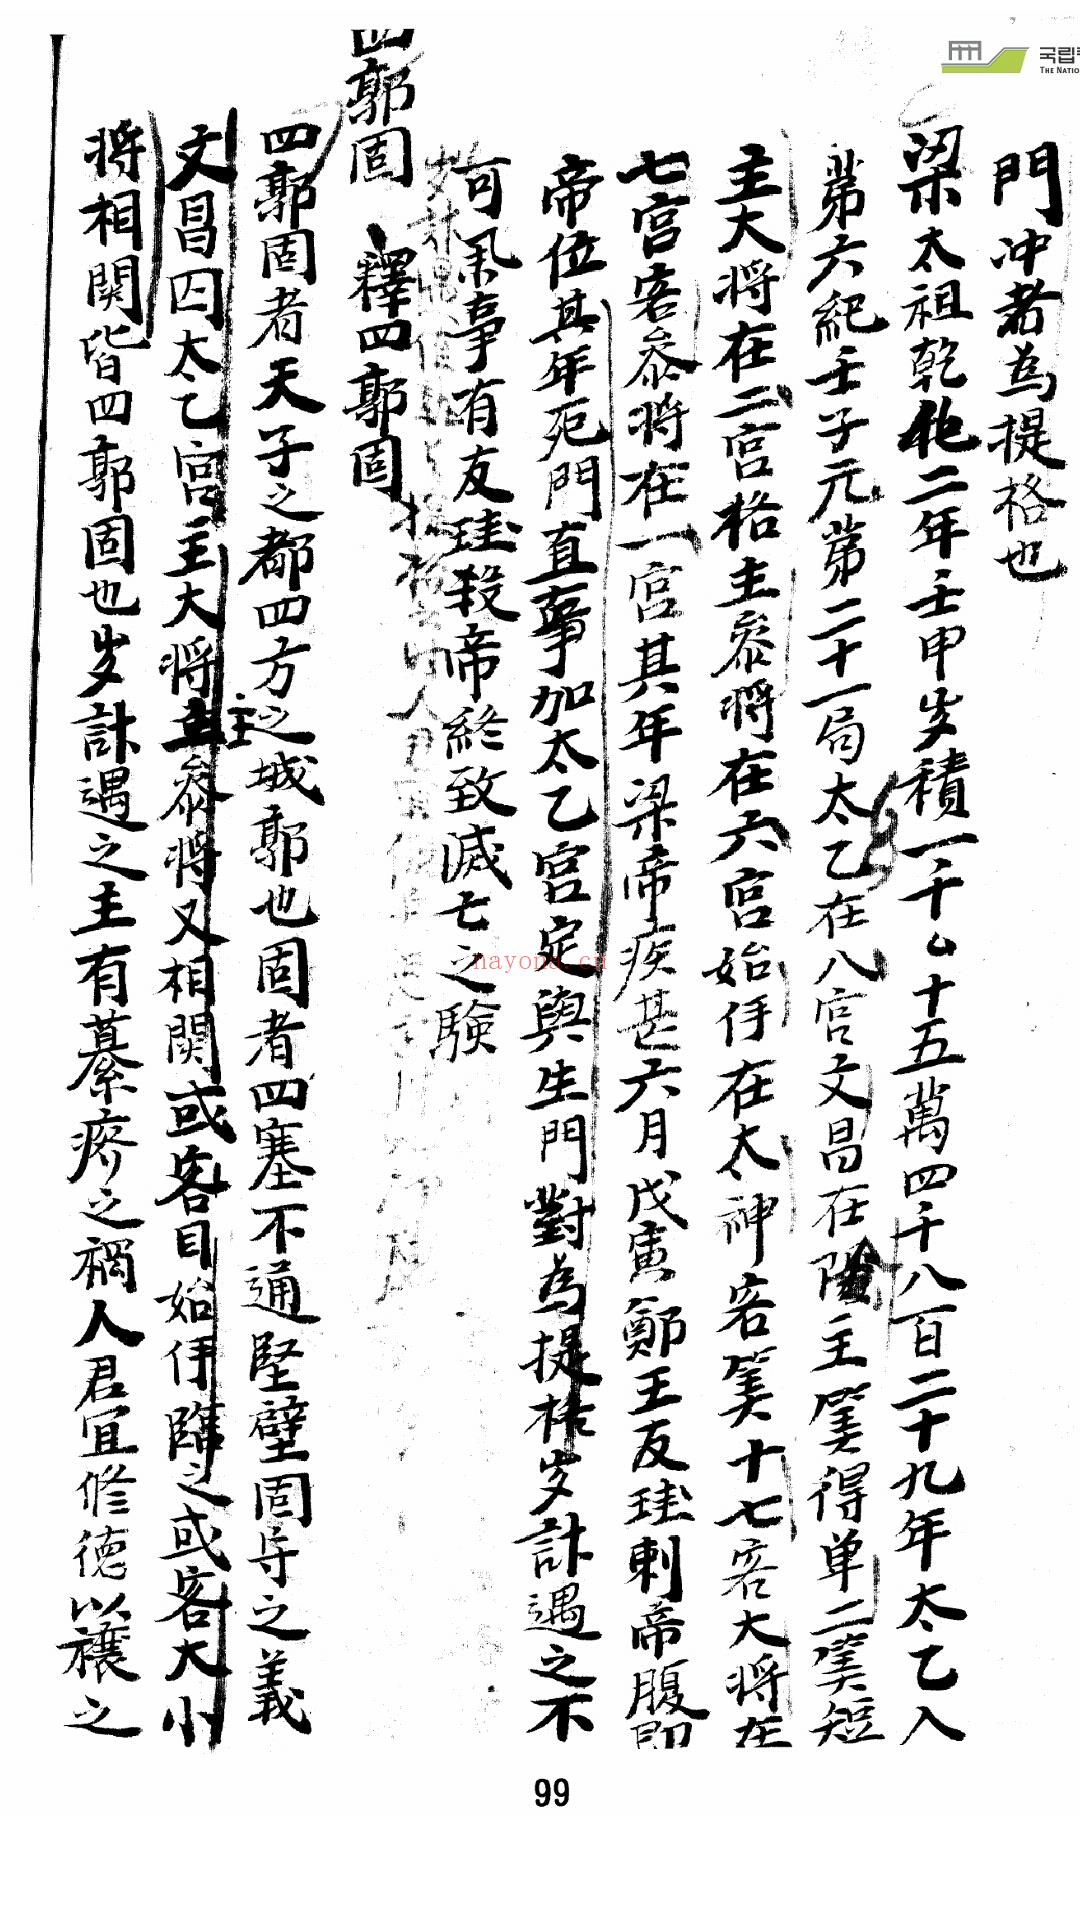 門冲者為提格也
梁太祖乾化二年壬申岁積一千么十五萬四千八百二十九年太乙入
第六紀壬子元第二十一局太乙在八宫文昌在陰主筭得单二筭短
主大将在二宫格主叅将在六宫始仔在太神客筭十七客大将在
七宫客叅将在一宫其年梁帝疾甚六月戊寅鄭王友珪刺帝腹即
帝位其年死門直事加太乙宫定與生門對為提格岁計遇之不
可用事有友珪殺帝終致滅亡之驗
四郭固 釋四郭固
四郭固者天子之都四方之城郭也固者四塞不通堅壁固守之義
文昌囚太乙宫主大将主叅将又相関或客目始仔臨之或客大小
将相関皆四郭固也岁計遇之主有篡療之禍人君宜修德以禳之
국립
THE NATIO
nayona.cn
99